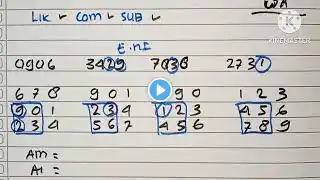 LIK ✓ COM ✓ SUB ✓
KINEMASTER
0906 3429 7030 2731
678 901 890 123
901 234 123 456
234 567 456 789
AM =
A1 =